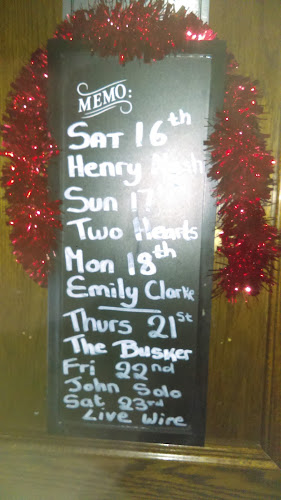 MEMO:
SAT 16th
Henry
Sun 17
Two Hearts
Mon 18th
Emily Clarke
Thurs 21st
The Busker
Fri 22nd
John Solo
Sat 23rd
Live Wire